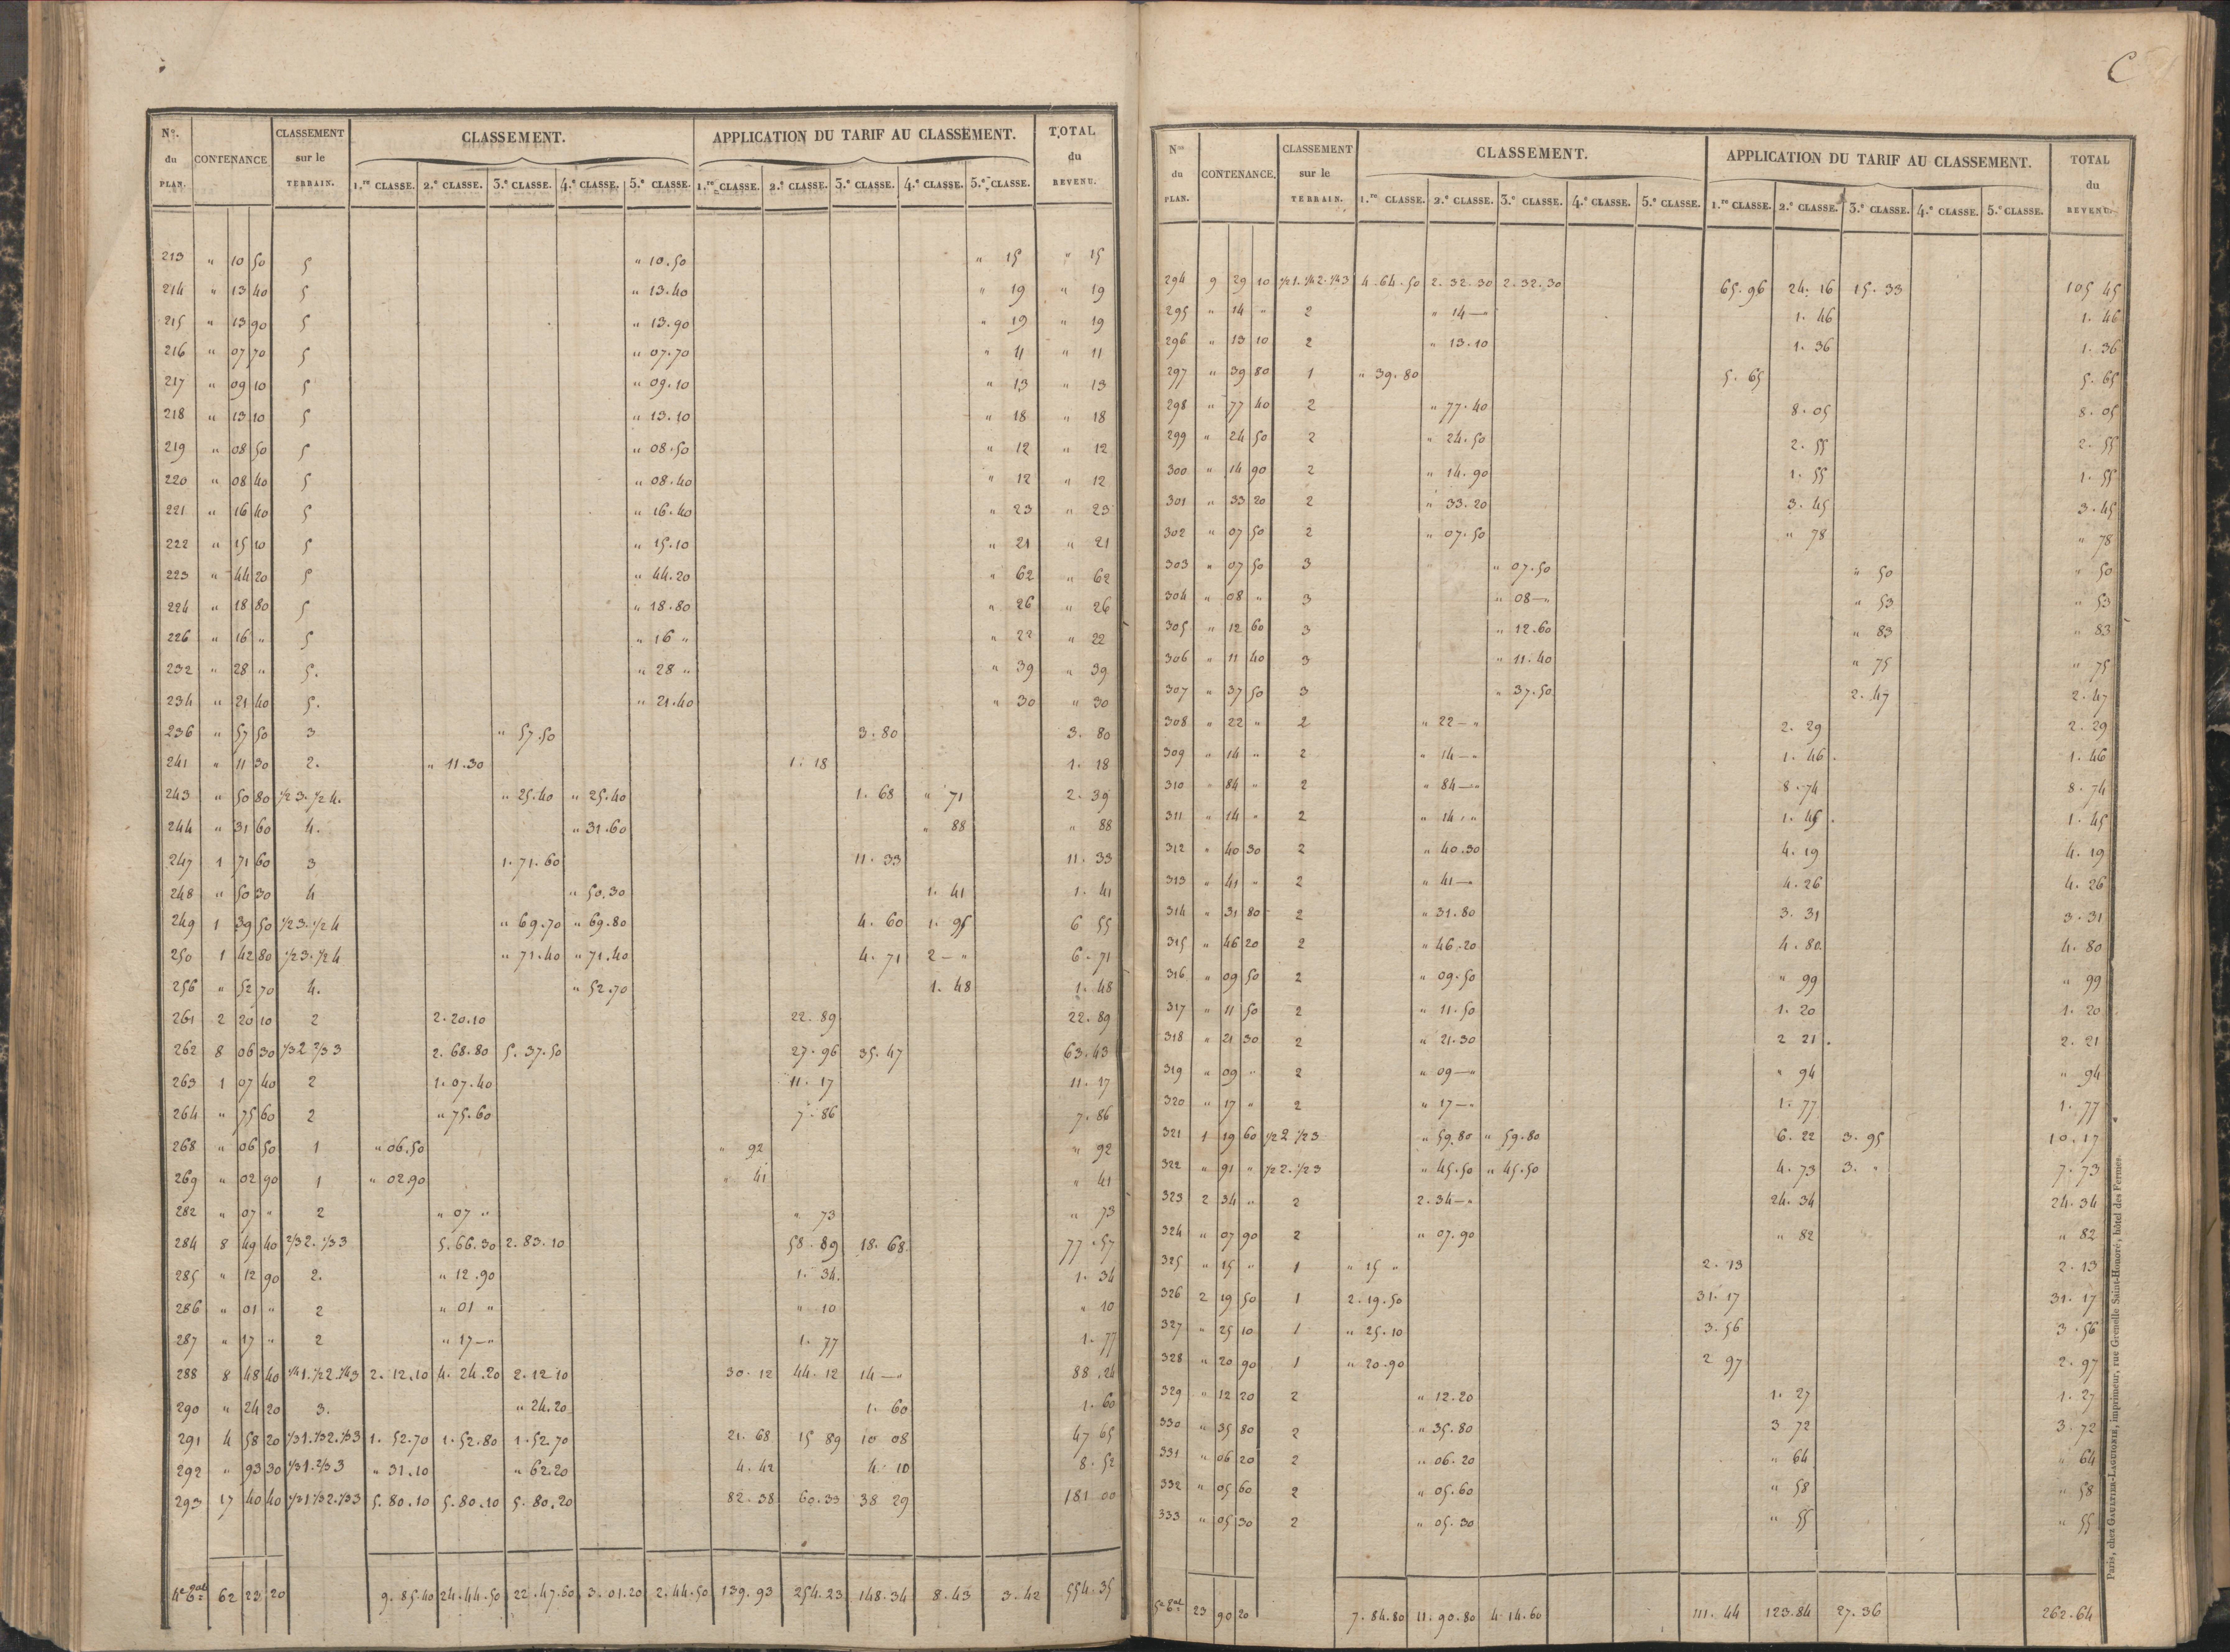 C
N.º du PLAN. CONTENANCE CLASSEMENT sur le TERRAIN. CLASSEMENT. APPLICATION DU TARIF AU CLASSEMENT. TOTAL du REVENU.
1.re CLASSE. 2.e CLASSE. 3.e CLASSE. 4.e CLASSE. 5.e CLASSE. 1.re CLASSE. 2.e CLASSE. 3.e CLASSE. 4.e CLASSE. 5.e CLASSE.
213 " 10 50 5 " 10.50 " 15 " 15
214 " 13 40 5 " 13.40 " 19 " 19
215 " 13 90 5 " 13.90 " 19 " 19
216 " 07 70 5 " 07.70 " 11 " 11
217 " 09 10 5 " 09.10 " 13 " 13
218 " 13 10 5 " 13.10 " 18 " 18
219 " 08 50 5 " 08.50 " 12 " 12
220 " 08 40 5 " 08.40 " 12 " 12
221 " 16 40 5 " 16.40 " 23 " 23
222 " 15 10 5 " 15.10 " 21 " 21
223 " 44 20 5 " 44.20 " 62 " 62
224 " 18 80 5 " 18.80 " 26 " 26
226 " 16 " 5 " 16 " " 22 " 22
232 " 28 " 5. " 28 " " 39 " 39
234 " 21 40 5. " 21.40 " 30 " 30
236 " 57 50 3 " 57.50 3.80 3.80
241 " 11 30 2. " 11.30 1.18 1.18
243 " 50 80 1/2 3. 1/2 4. " 25.40 " 25.40 1.68 " 71 2.39
244 " 31 60 4. " 31.60 " 88 " 88
247 1 71 60 3 1.71.60 11.33 11.33
248 " 50 30 4 " 50.30 1.41 1.41
249 1 39 50 1/2 3. 1/2 4 " 69.70 " 69.80 4.60 1.95 6 55
250 1 42 80 1/2 3. 1/2 4 " 71.40 " 71.40 4.71 2 — " 6.71
256 " 52 70 4. " 52.70 1.48 1.48
261 2 20 10 2 2.20.10 22.89 22.89
262 8 06 30 1/3 2 2/3 3 2.68.80 5.37.50 27.96 35.47 63.43
263 1 07 40 2 1.07.40 11.17 11.17
264 " 75 60 2 " 75.60 7.86 7.86
268 " 06 50 1 " 06.50 " 92 " 92
269 " 02 90 1 " 02.90 " 41 " 41
282 " 07 " 2 " 07 " " 73 " 73
284 8 49 40 2/3 2. 1/3 3 5.66.30 2.83.10 58.89 18.68 77.57
285 " 12 90 2. " 12.90 1.34. 1.34
286 " 01 " 2 " 01 " " 10 " 10
287 " 17 " 2 " 17 — " 1.77 1.77
288 8 48 40 1/4 1. 1/2 2. 1/4 3 2.12.10 4.24.20 2.12 10 30.12 44.12 14 — " 88.24
290 " 24 20 3. " 24.20 1.60 1.60
291 4 58 20 1/3 1. 1/3 2. 1/3 3 1.52.70 1.52.80 1.52.70 21.68 15 89 10 08 47 65
292 " 93 30 1/3 1. 2/3 3 " 31.10 " 62.20 4.42 4.10 8.52
293 17 40 40 1/3 1 1/3 2. 1/3 3 5.80.10 5.80.10 5.80.20 82.38 60.33 38 29 181 00
62 23 20 9.85.40 24.44.50 22.47.60 3.01.20 2.44.50 139.93 254.23 148.34 8.43 3.42 554.35
N.os du PLAN. CONTENANCE. CLASSEMENT sur le TERRAIN. CLASSEMENT. APPLICATION DU TARIF AU CLASSEMENT. TOTAL du REVENU.
1.re CLASSE. 2.e CLASSE. 3.e CLASSE. 4.e CLASSE. 5.e CLASSE. 1.re CLASSE. 2.e CLASSE. 3.e CLASSE. 4.e CLASSE. 5.e CLASSE.
294 9 29 10 1/2 1. 1/4 2. 1/4 3 4.64.50 2.32.30 2.32.30 65.96 24.16 15.33 105 45
295 " 14 " 2 " 14 — " 1.46 1.46
296 " 13 10 2 " 13.10 1.36 1.36
297 " 39 80 1 " 39.80 5.65 5.65
298 " 77 40 2 " 77.40 8.05 8.05
299 " 24 50 2 " 24.50 2.55 2.55
300 " 14 90 2 " 14.90 1.55 1.55
301 " 33 20 2 " 33.20 3.45 3.45
302 " 07 50 2 " 07.50 " 78 " 78
303 " 07 50 3 " 07.50 " 50 " 50
304 " 08 " 3 " 08 — " " 53 " 53
305 " 12 60 3 " 12.60 " 83 " 83
306 " 11 40 3 " 11.40 " 75 " 75
307 " 37 50 3 " 37.50 2.47 2.47
308 " 22 " 2 " 22 — " 2.29 2.29
309 " 14 " 2 " 14 — " 1.46. 1.46
310 " 84 " 2 " 84 — " 8.74 8.74
311 " 14 " 2 " 14 . " 1.45. 1.45
312 " 40 30 2 " 40.30 4.19 4.19
313 " 41 " 2 " 41 — " 4.26 4.26
314 " 31 80 2 " 31.80 3.31 3.31
315 " 46 20 2 " 46.20 4.80 4.80
316 " 09 50 2 " 09.50 " 99 " 99
317 " 11 50 2 " 11.50 1.20 1.20
318 " 21 30 2 " 21.30 2 21. 2.21
319 " 09 " 2 " 09 — " " 94 " 94
320 " 17 " 2 " 17 — " 1.77 1.77
321 1 19 60 1/2 2 1/2 3 " 59.80 " 59.80 6.22 3.95 10.17
322 " 91 " 1/2 2. 1/2 3 " 45.50 " 45.50 4.73 3. " 7.73
323 2 34 " 2 2.34 — " 24.34 24.34
324 " 07 90 2 " 07.90 " 82 " 82
325 " 15 " 1 " 15 " 2.13 2.13
326 2 19 50 1 2.19.50 31.17 31.17
327 " 25 10 1 " 25.10 3.56 3.56
328 " 20 90 1 " 20.90 2 97 2.97
329 " 12 20 2 " 12.20 1.27 1.27
330 " 35 80 2 " 35.80 3 72 3.72
331 " 06 20 2 " 06.20 " 64 " 64
332 " 05 60 2 " 05.60 " 58 " 58
333 " 05 30 2 " 05.30 " 55 " 55
23 90 20 7.84.80 11.90.80 4.14.60 111.44 123.84 27.36 262.64
Paris, chez GAULTIER-LAGUIONIE, imprimeur, rue Grenelle Saint-Honoré, hôtel des Fermes.